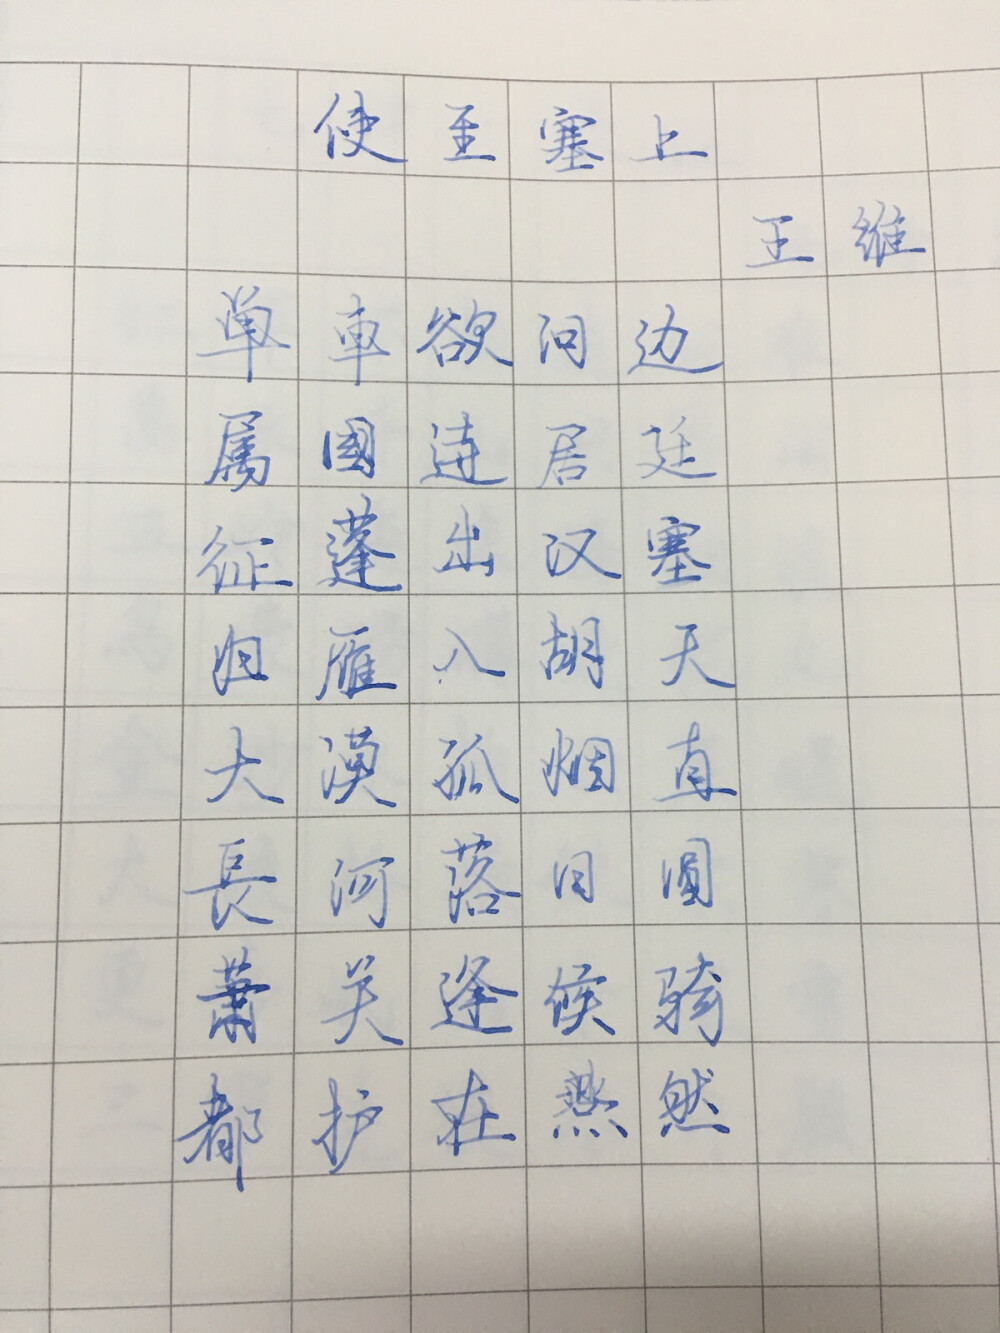 使至塞上
王维
单車欲问边
属國连居廷
征蓬出汉塞
归雁入胡天
大漠孤烟直
長河落日圓
萧关逢候骑
都护在燕然